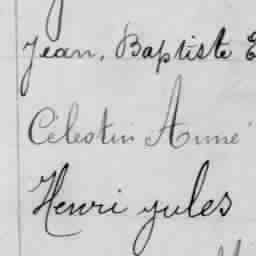 Jean, Baptiste E
Célestin Anné
Henri jules